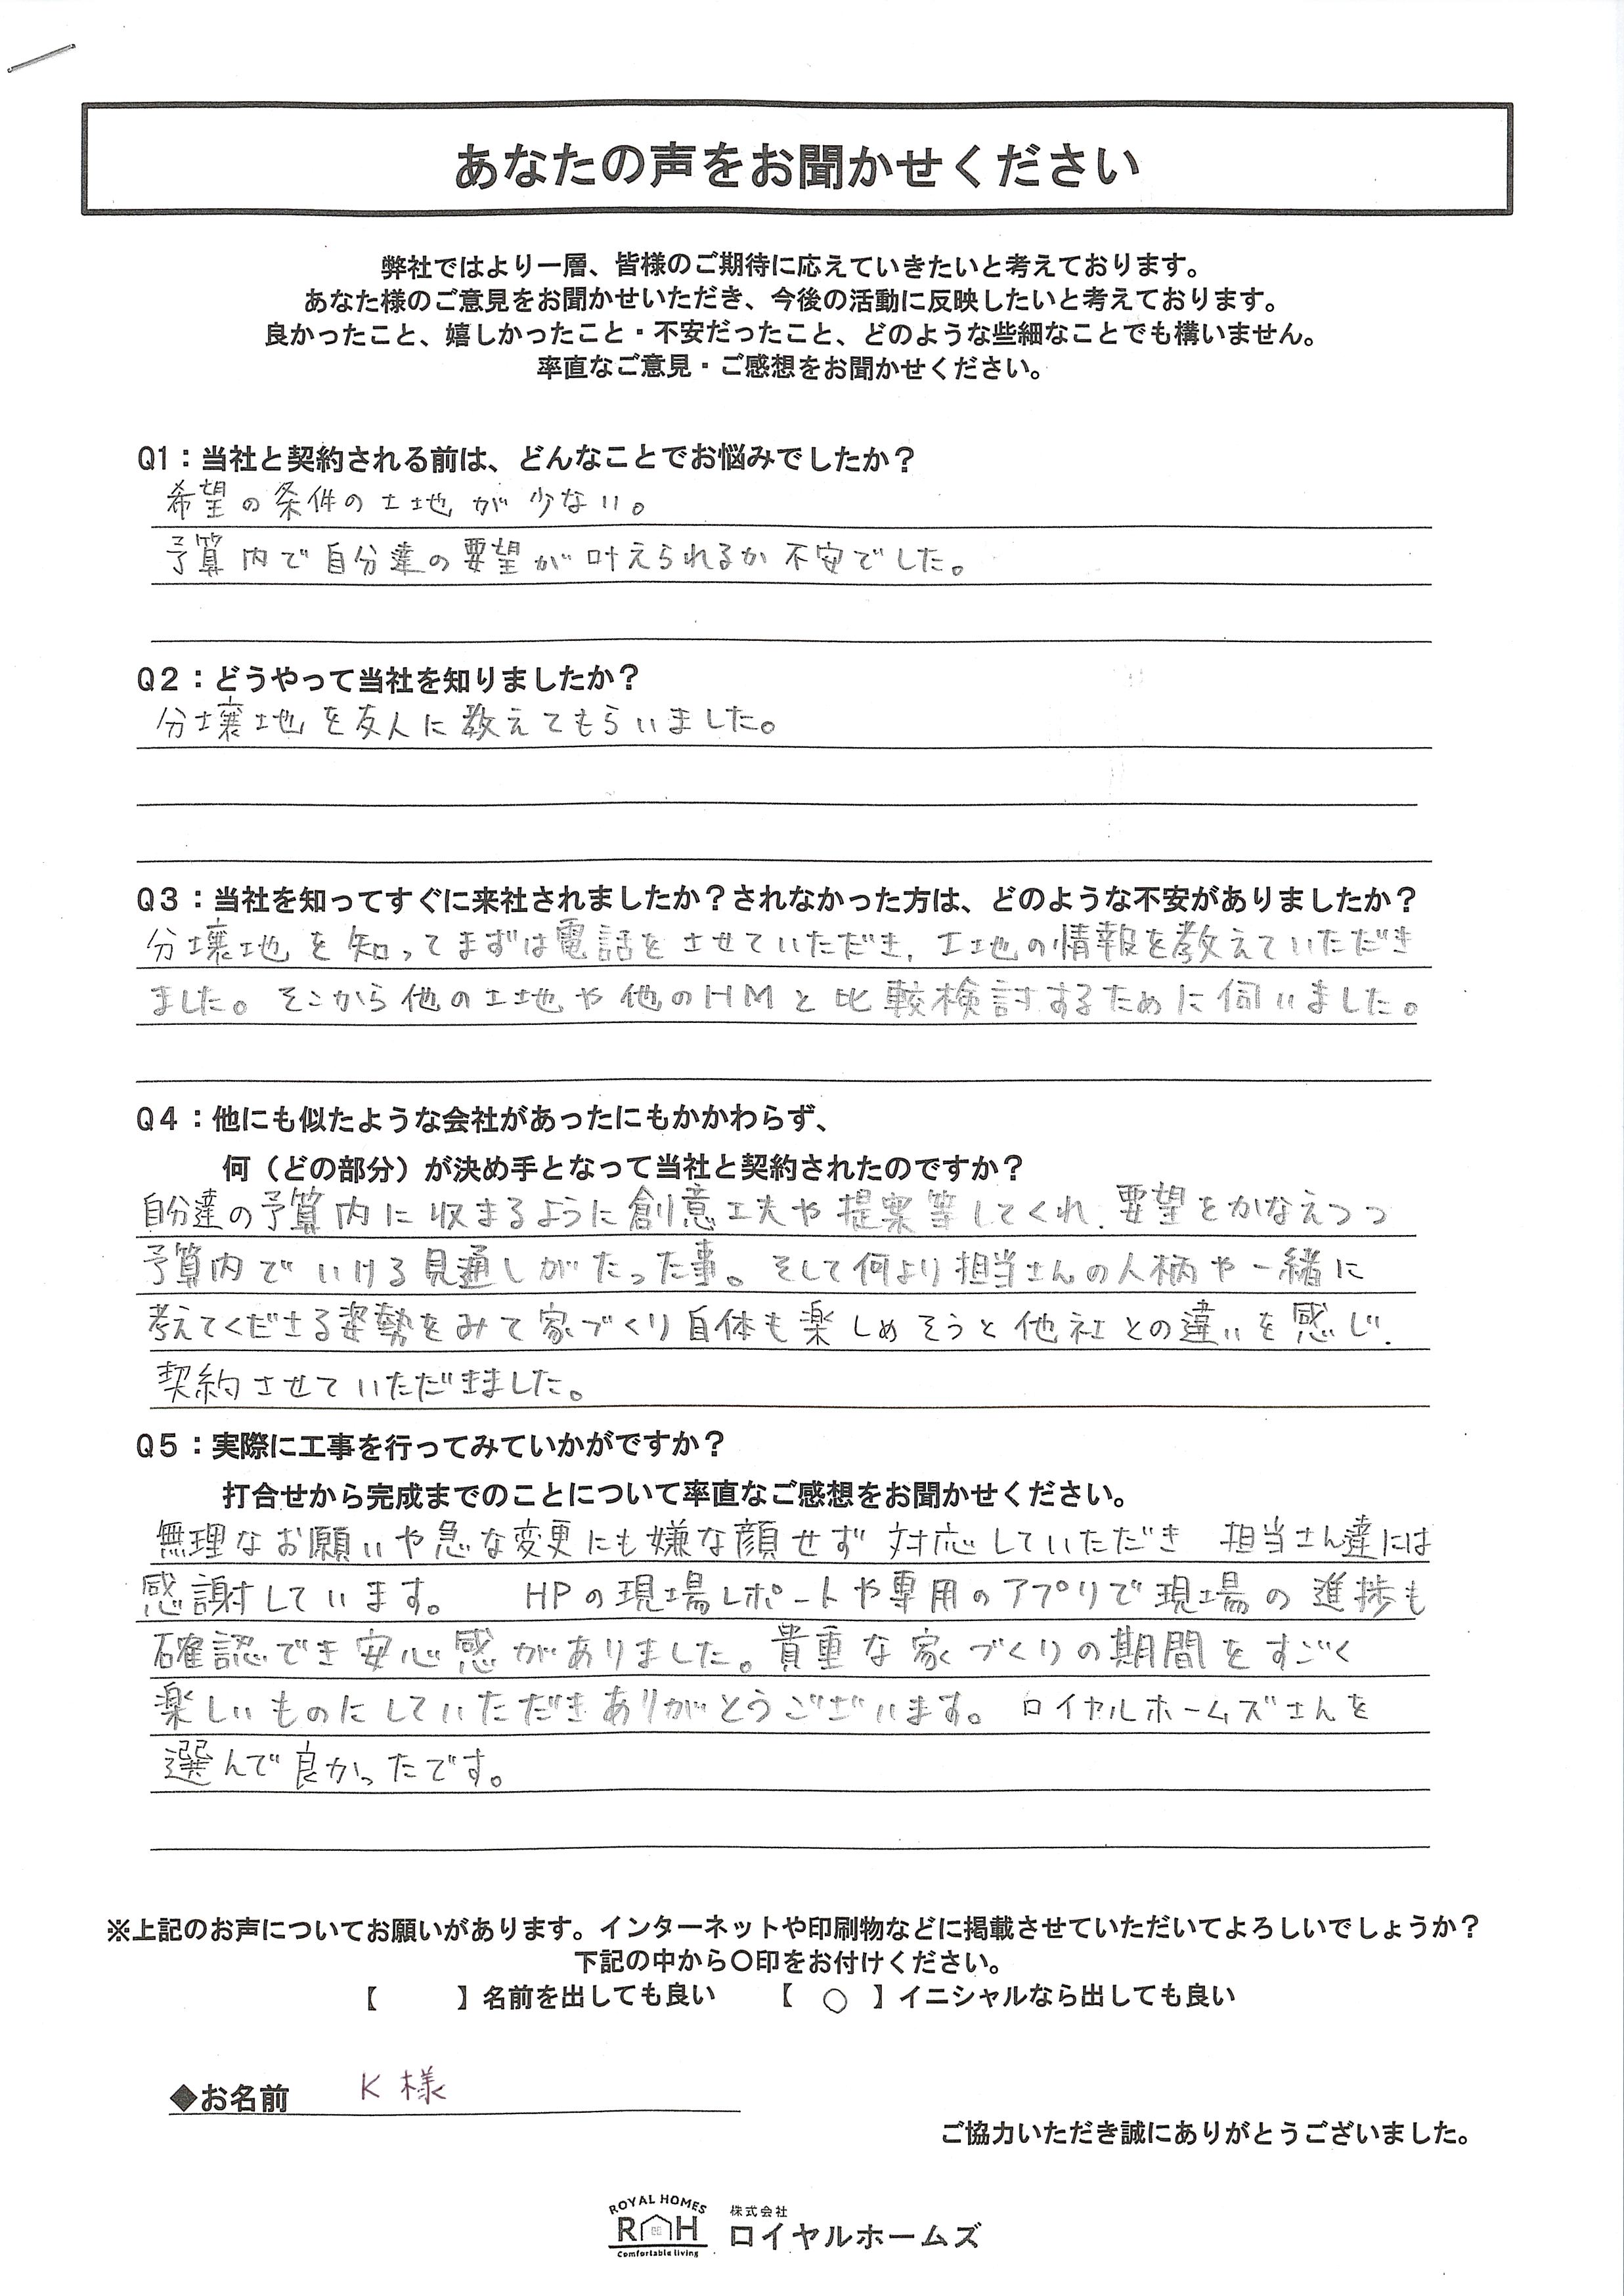 あなたの声をお聞かせください
弊社ではより一層、皆様のご期待に応えていきたいと考えております。
あなた様のご意見をお聞かせいただき、今後の活動に反映したいと考えております。
良かったこと、嬉しかったこと・不安だったこと、どのような些細なことでも構いません。
率直なご意見・ご感想をお聞かせください。
Q1：当社と契約される前は、どんなことでお悩みでしたか？
希望の条件の土地が少ない。
予算内で自分達の要望が叶えられるか不安でした。
Q2：どうやって当社を知りましたか？
分壌地を友人に教えてもらいました。
Q3：当社を知ってすぐに来社されましたか？されなかった方は、どのような不安がありましたか？
分壌地を知ってまずは電話をさせていただき、土地の情報を教えていただき
ました。そこから他の土地や他のHMと比較検討するために伺いました。
Q4：他にも似たような会社があったにもかかわらず、
何（どの部分）が決め手となって当社と契約されたのですか？
自分達の予算内に収まるように創意工夫や提案等してくれ、要望をかなえつつ
予算内でいける見通しがたった事。そして何より担当さんの人柄や一緒に
考えてくださる姿勢をみて家づくり自体も楽しめそうと他社との違いを感じ、
契約させていただきました。
Q5：実際に工事を行ってみていかがですか？
打合せから完成までのことについて率直なご感想をお聞かせください。
無理なお願いや急な変更にも嫌な顔せず対応していただき 担当さん達には
感謝しています。 HPの現場レポートや専用のアプリで現場の進捗も
確認でき安心感がありました。貴重な家づくりの期間をすごく
楽しいものにしていただきありがとうございます。ロイヤルホームズさんを
選んで良かったです。
※上記のお声についてお願いがあります。インターネットや印刷物などに掲載させていただいてよろしいでしょうか？
下記の中から〇印をお付けください。
【 】名前を出しても良い 【 ○ 】イニシャルなら出しても良い
◆お名前 K様
ご協力いただき誠にありがとうございました。
ROYAL HOMES
RH
Comfortable living
株式会社
ロイヤルホームズ